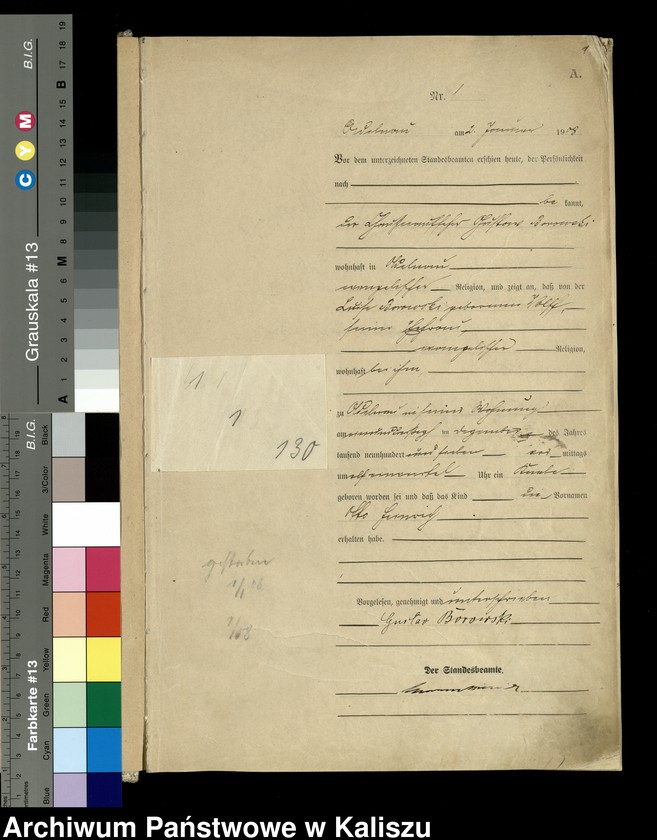 A.
Nr. 1
am 2. Januar 1908
Vor dem unterzeichneten Standesbeamten erschien heute, der Persönlichkeit
nach
be kannt,
der Gustav Borowski
wohnhaft in
evangelischer Religion, und zeigt an, daß von der
Luise Borowski geborenen Wolff,
seiner Ehefrau
evangelischer Religion,
wohnhaft bei ihm,
zu in seiner Wohnung
am Dezember des Jahres
tausend neunhundert und sieben vor mittags
um elf Uhr ein Knabe
geboren worden sei und daß das Kind die Vornamen
Otto Heinrich
erhalten habe.
Vorgelesen, genehmigt und unterschrieben
Gustav Borowski
Der Standesbeamte.
1
130
gestorben
Grauskala #13
B.I.G.
C Y M
A 1 2 3 4 5 6 M 8 9 10 11 12 13 14 15 B 17 18 19
Farbkarte #13
B.I.G.
Blue Cyan Green Yellow Red Magenta White 3/Color Black
Archiwum Państwowe w Kaliszu